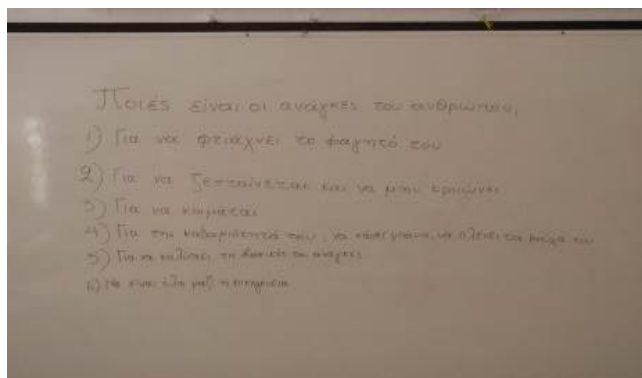 Ποιές είναι οι ανάγκες του ανθρώπου;
1) Για να φτιάχνει το φαγητό του
2) Για να ζεσταίνεται και να μην κρυώνει
3) Για να κοιμάται
4) Για την καθαριότητά του, να κάνει μπάνιο, να πλένει τα ρούχα του
5) Για να καλύπτει τις βασικές του ανάγκες
6) Να είναι όλη μαζί η οικογένεια